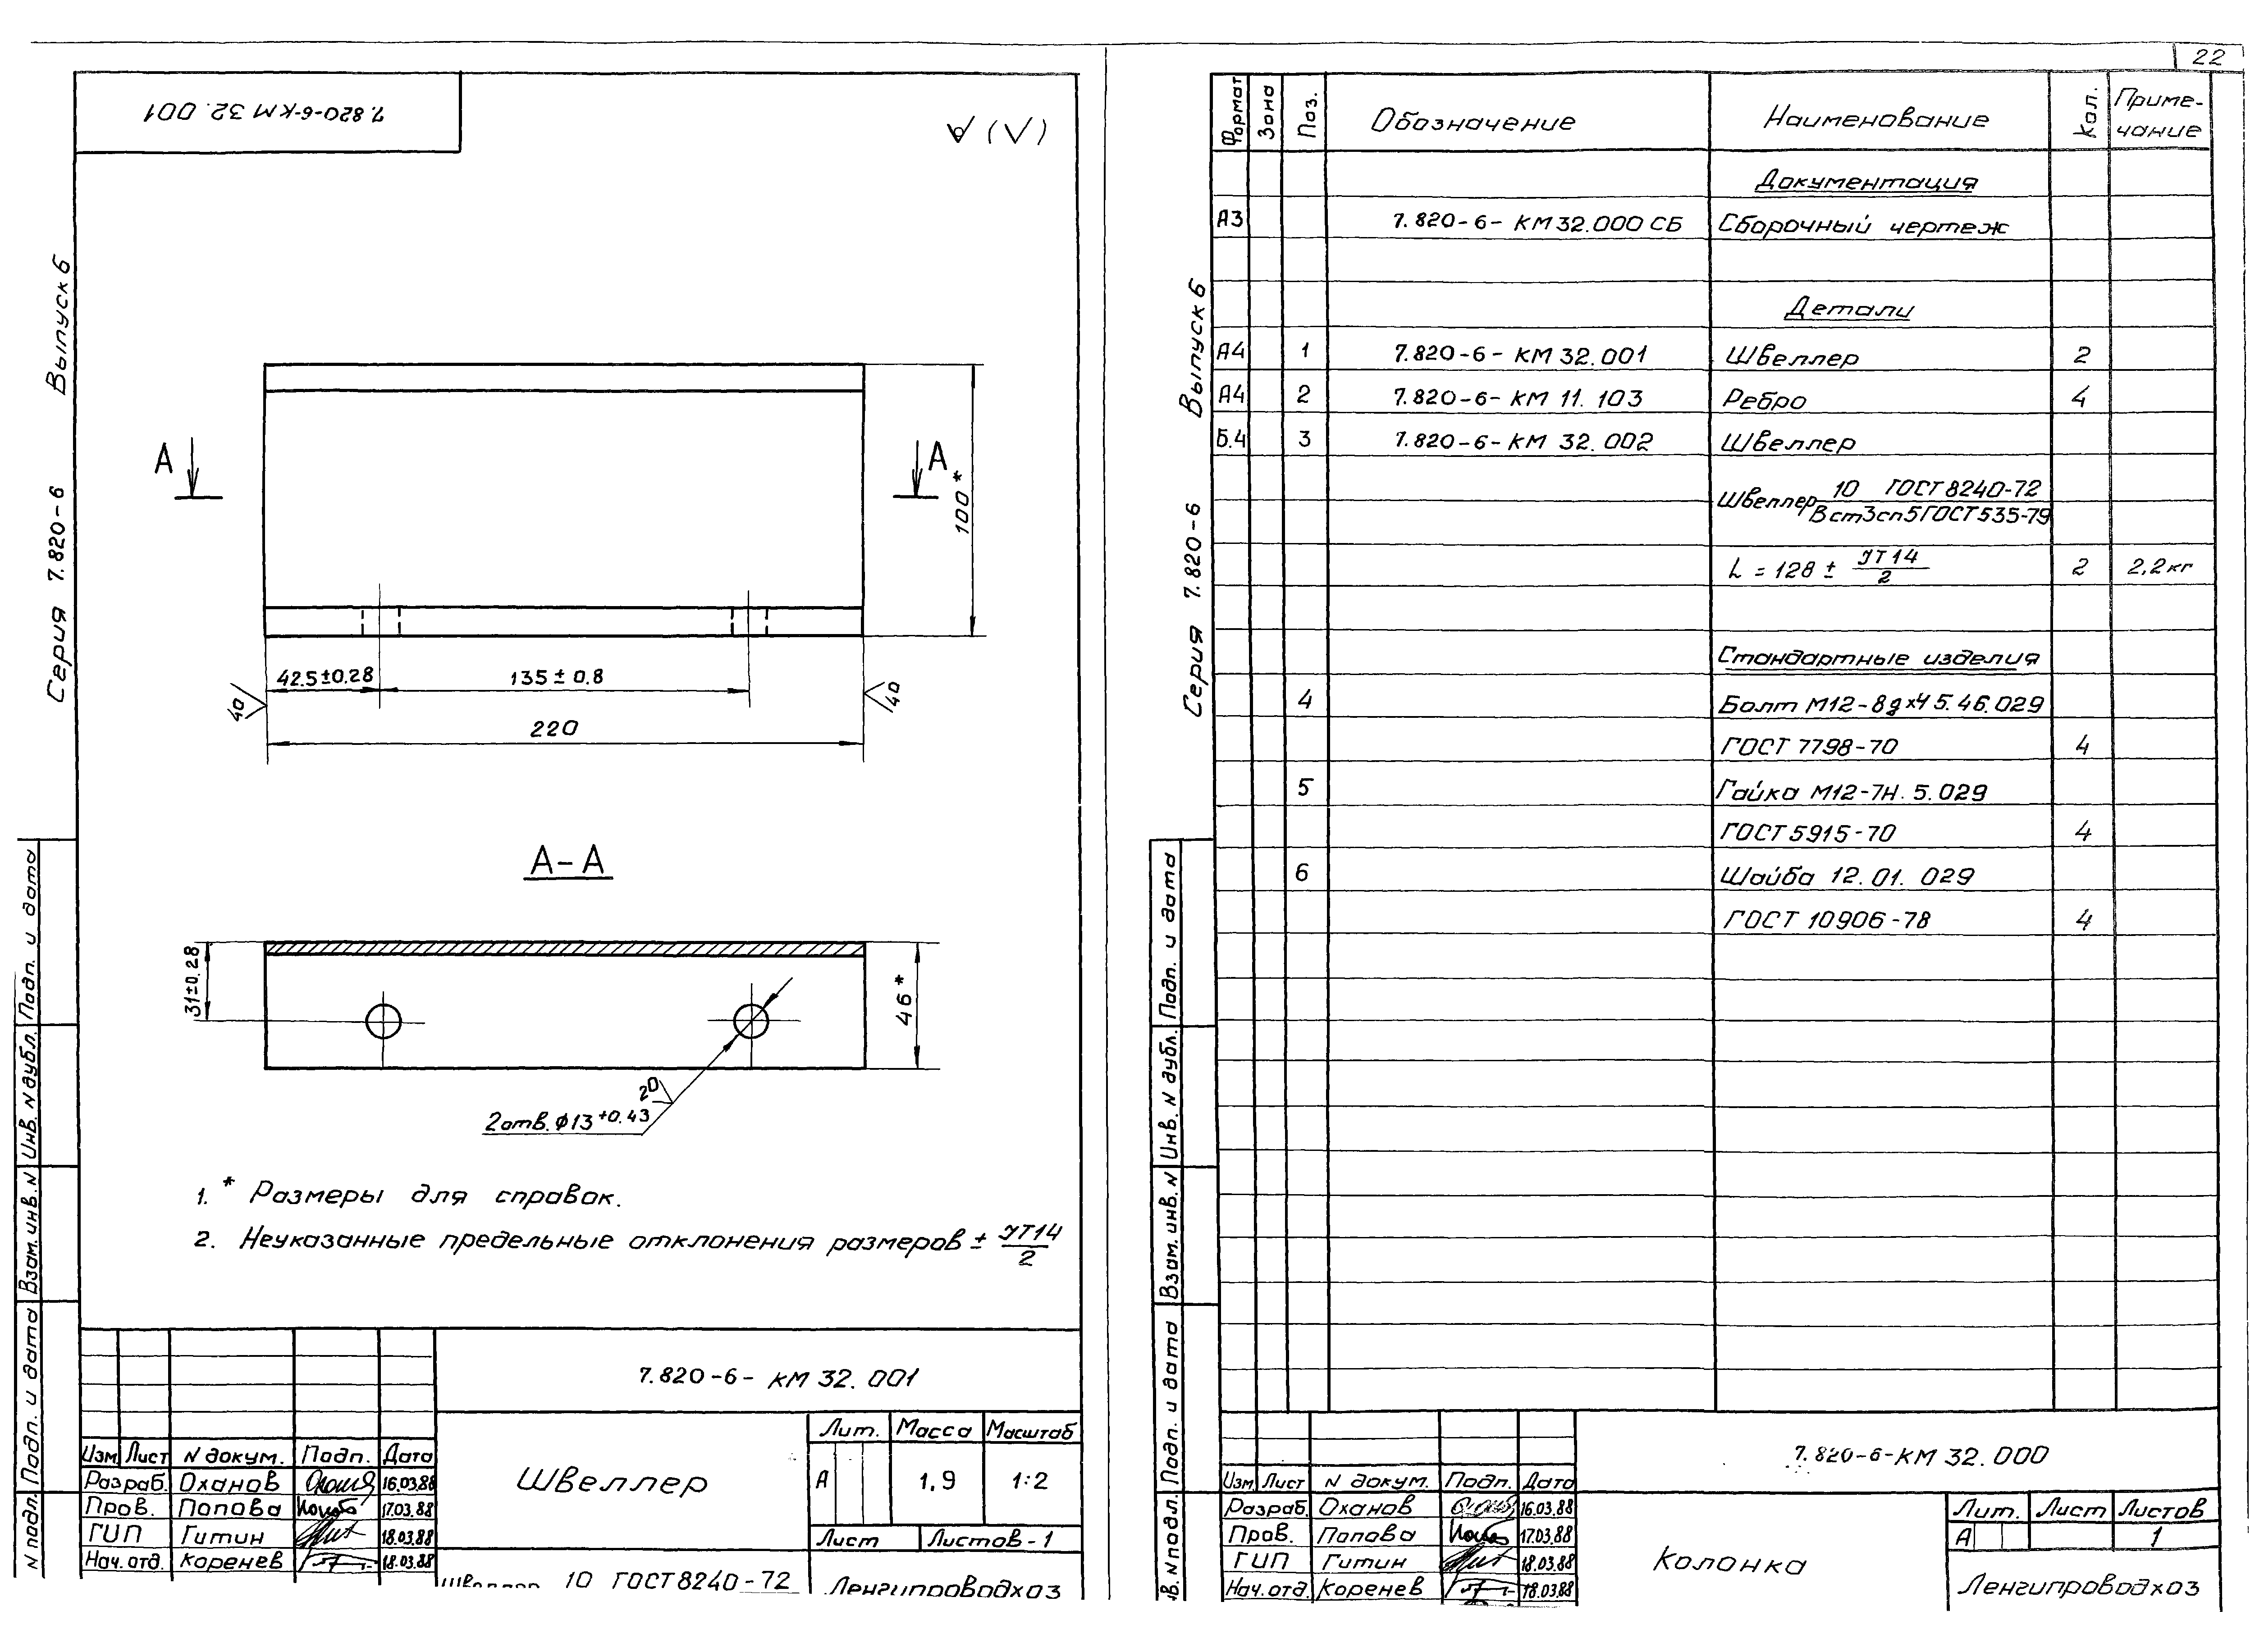 22
7.820-6-КМ 32.001
(√)
Серия 7.820-6 Выпуск 6
А А
100*
42.5±0.28 135±0.8
40 40
220
А-А
31±0.28
46*
20
2отв. ϕ13 +0.43
1. * Размеры для справок.
2. Неуказанные предельные отклонения размеров ± JT14/2
Подп. и дата
Инв. N дубл.
Взам. инв. N
Подп. и дата
N подл.
7.820-6- КМ 32.001
Изм Лист N докум. Подп. Дата
Разраб. Оханов 16.03.88
Пров. Попова 17.03.88
ГИП Гитин 18.03.88
Нач.отд. Коренев 18.03.88
Швеллер
Лит. Масса Масштаб
А 1,9 1:2
Лист Листов-1
Швеллер 10 ГОСТ 8240-72
Ленгипроводхоз
Серия 7.820-6 Выпуск 6
Формат Зона Поз. Обозначение Наименование Кол. Приме-
чание
Документация
А3 7.820-6- КМ 32.000 СБ Сборочный чертеж
Детали
А4 1 7.820-6- КМ 32.001 Швеллер 2
А4 2 7.820-6- КМ 11.103 Ребро 4
Б.4 3 7.820-6- КМ 32.002 Швеллер
Швеллер 10 ГОСТ 8240-72
Вст3сп5ГОСТ535-79
L = 128 ± JT14/2 2 2,2кг
Стандартные изделия
4 Болт М12-8gx45.46.029
ГОСТ 7798-70 4
5 Гайка М12-7Н.5.029
ГОСТ 5915-70 4
6 Шайба 12.01.029
ГОСТ 10906-78 4
Подп. и дата
Инв. N дубл.
Взам. инв. N
Подп. и дата
в. N подл.
7.820-6-КМ 32.000
Изм Лист N докум. Подп. Дата
Разраб. Оханов 16.03.88
Пров. Попова 17.03.88
ГИП Гитин 18.03.88
Нач.отд. Коренев 18.03.88
Колонка
Лит. Лист Листов
А 1
Ленгипроводхоз